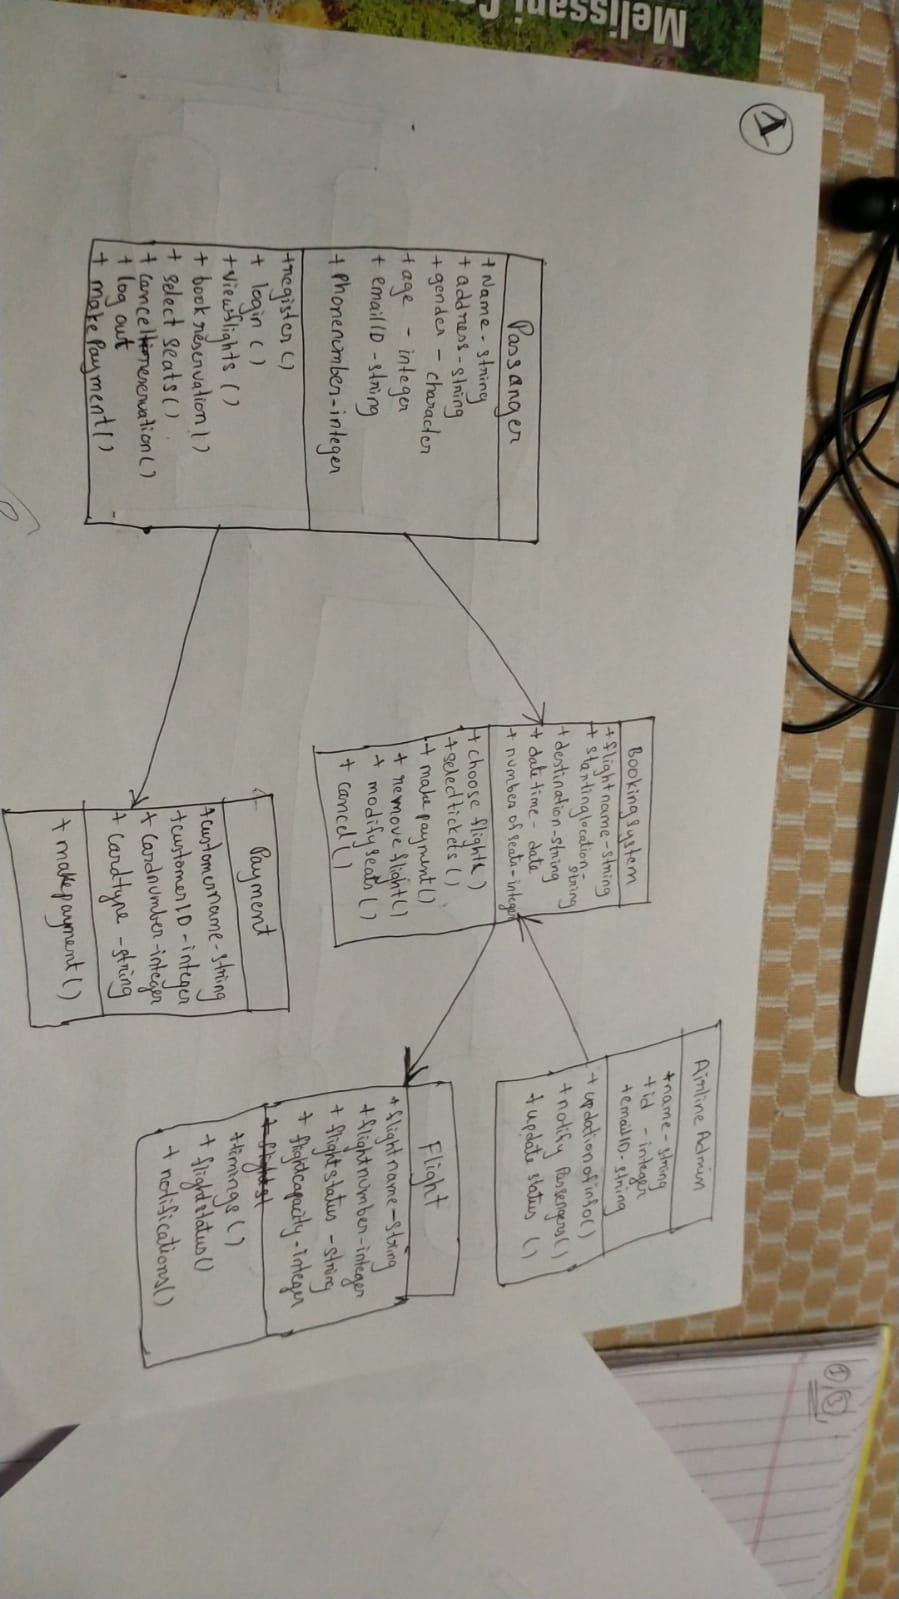 Melissani
1
Passanger
+ Name - string
+ address - string
+ gender - character
+ age - integer
+ email ID - string
+ Phonenumber - integer
+ register ()
+ login ()
+ viewflights ()
+ book reservation ()
+ select seats ()
+ cancel reservation ()
+ log out
+ make Payment ()
Booking System
+ flight name - string
+ starting location - string
+ destination - string
+ date time - date
+ number of seats - integer
+ choose flight ()
+ select tickets ()
+ make payment ()
+ remove flight ()
+ modify seats ()
+ cancel ()
Payment
+ customername - string
+ customer ID - integer
+ Cardnumber - integer
+ cardtype - string
+ make payment ()
Airline Admin
+ name - string
+ id - integer
+ email ID - string
+ updation of info ()
+ notify Passengers ()
+ update status ()
Flight
+ flight name - string
+ flight number - integer
+ flight status - string
+ flight capacity - integer
+ timings ()
+ flight status ()
+ notifications ()